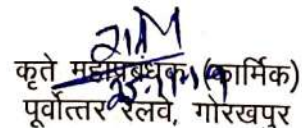 कृते महाप्रबंधक (कार्मिक)
पूर्वोत्तर रेलवे, गोरखपुर